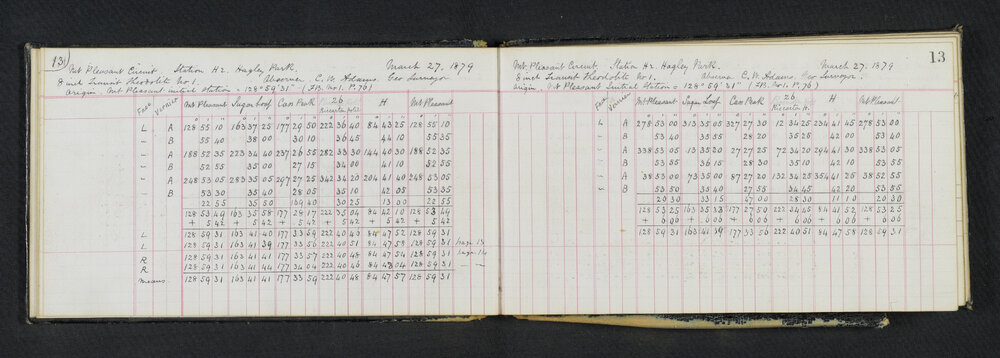 13
Mt Pleasant Circuit Station H2. Hagley Park. March 27. 1879
8 inch Transit Theodolite No 1. Observer C. W. Adams. Geo Surveyor
Origin. Mt Pleasant initial Station = 128° 59' 31" (F.B. No 1. P. 76)
Face Vernier Mt Pleasant Sugar Loaf Cass Peak 26 H Mt Pleasant
L A 128 55 10 163 37 25 177 29 50 222 36 40 84 43 25 128 55 10
" B 55 40 38 00 30 10 36 45 44 10 55 35
" A 188 52 35 223 34 40 237 26 55 282 33 30 144 40 30 188 52 35
" B 52 55 35 00 27 15 34 00 41 10 52 55
" A 248 53 05 283 35 05 297 27 25 342 34 20 204 41 40 248 53 05
" B 53 30 35 40 28 05 35 10 42 05 53 35
22 55 35 50 169 40 30 25 13 00 22 55
128 53 49 163 35 58 177 28 17 222 35 04 84 42 10 128 53 49
+ 5 42 + 5 42 + 5 42 + 5 42 + 5 42 + 5 42
L 128 59 31 163 41 40 177 33 59 222 40 46 84 47 52 128 59 31
L 128 59 31 163 41 39 177 33 56 222 40 51 84 47 58 128 59 31 page 13
R 128 59 31 163 41 41 177 33 57 222 40 48 84 47 54 128 59 31 page 14
R 128 59 31 163 41 44 177 34 04 222 40 46 84 48 04 128 59 31 " "
Means. 128 59 31 163 41 41 177 33 59 222 40 48 84 47 57 128 59 31
13
Mt. Pleasant Circuit. Station H2 Hagley Park. March 27. 1879
8 inch Transit Theodolite No 1. Observer C. W. Adams. Geo Surveyor.
Origin. Mt Pleasant Initial Station = 128° 59' 31" (F.B. No 1. P. 76)
Face Vernier Mt Pleasant Sugar Loaf Cass Peak 26 H Mt Pleasant
L A 278 53 00 313 35 05 327 27 30 12 34 25 234 41 45 278 53 00
" B 53 40 35 55 28 20 35 25 42 00 53 40
" A 338 53 05 13 35 20 27 27 25 72 34 20 294 41 30 338 53 05
" B 53 55 36 15 28 30 35 10 42 10 53 55
" A 38 53 00 73 35 00 87 27 20 132 34 25 354 41 25 38 52 55
" B 53 50 35 40 27 55 34 45 42 20 53 55
20 30 33 15 47 00 28 30 11 10 20 30
128 53 25 163 35 33 177 27 50 222 34 45 84 41 52 128 53 25
+ 6 06 + 6 06 + 6 06 + 6 06 + 6 06 + 6 06
128 59 31 163 41 39 177 33 56 222 40 51 84 47 58 128 59 31